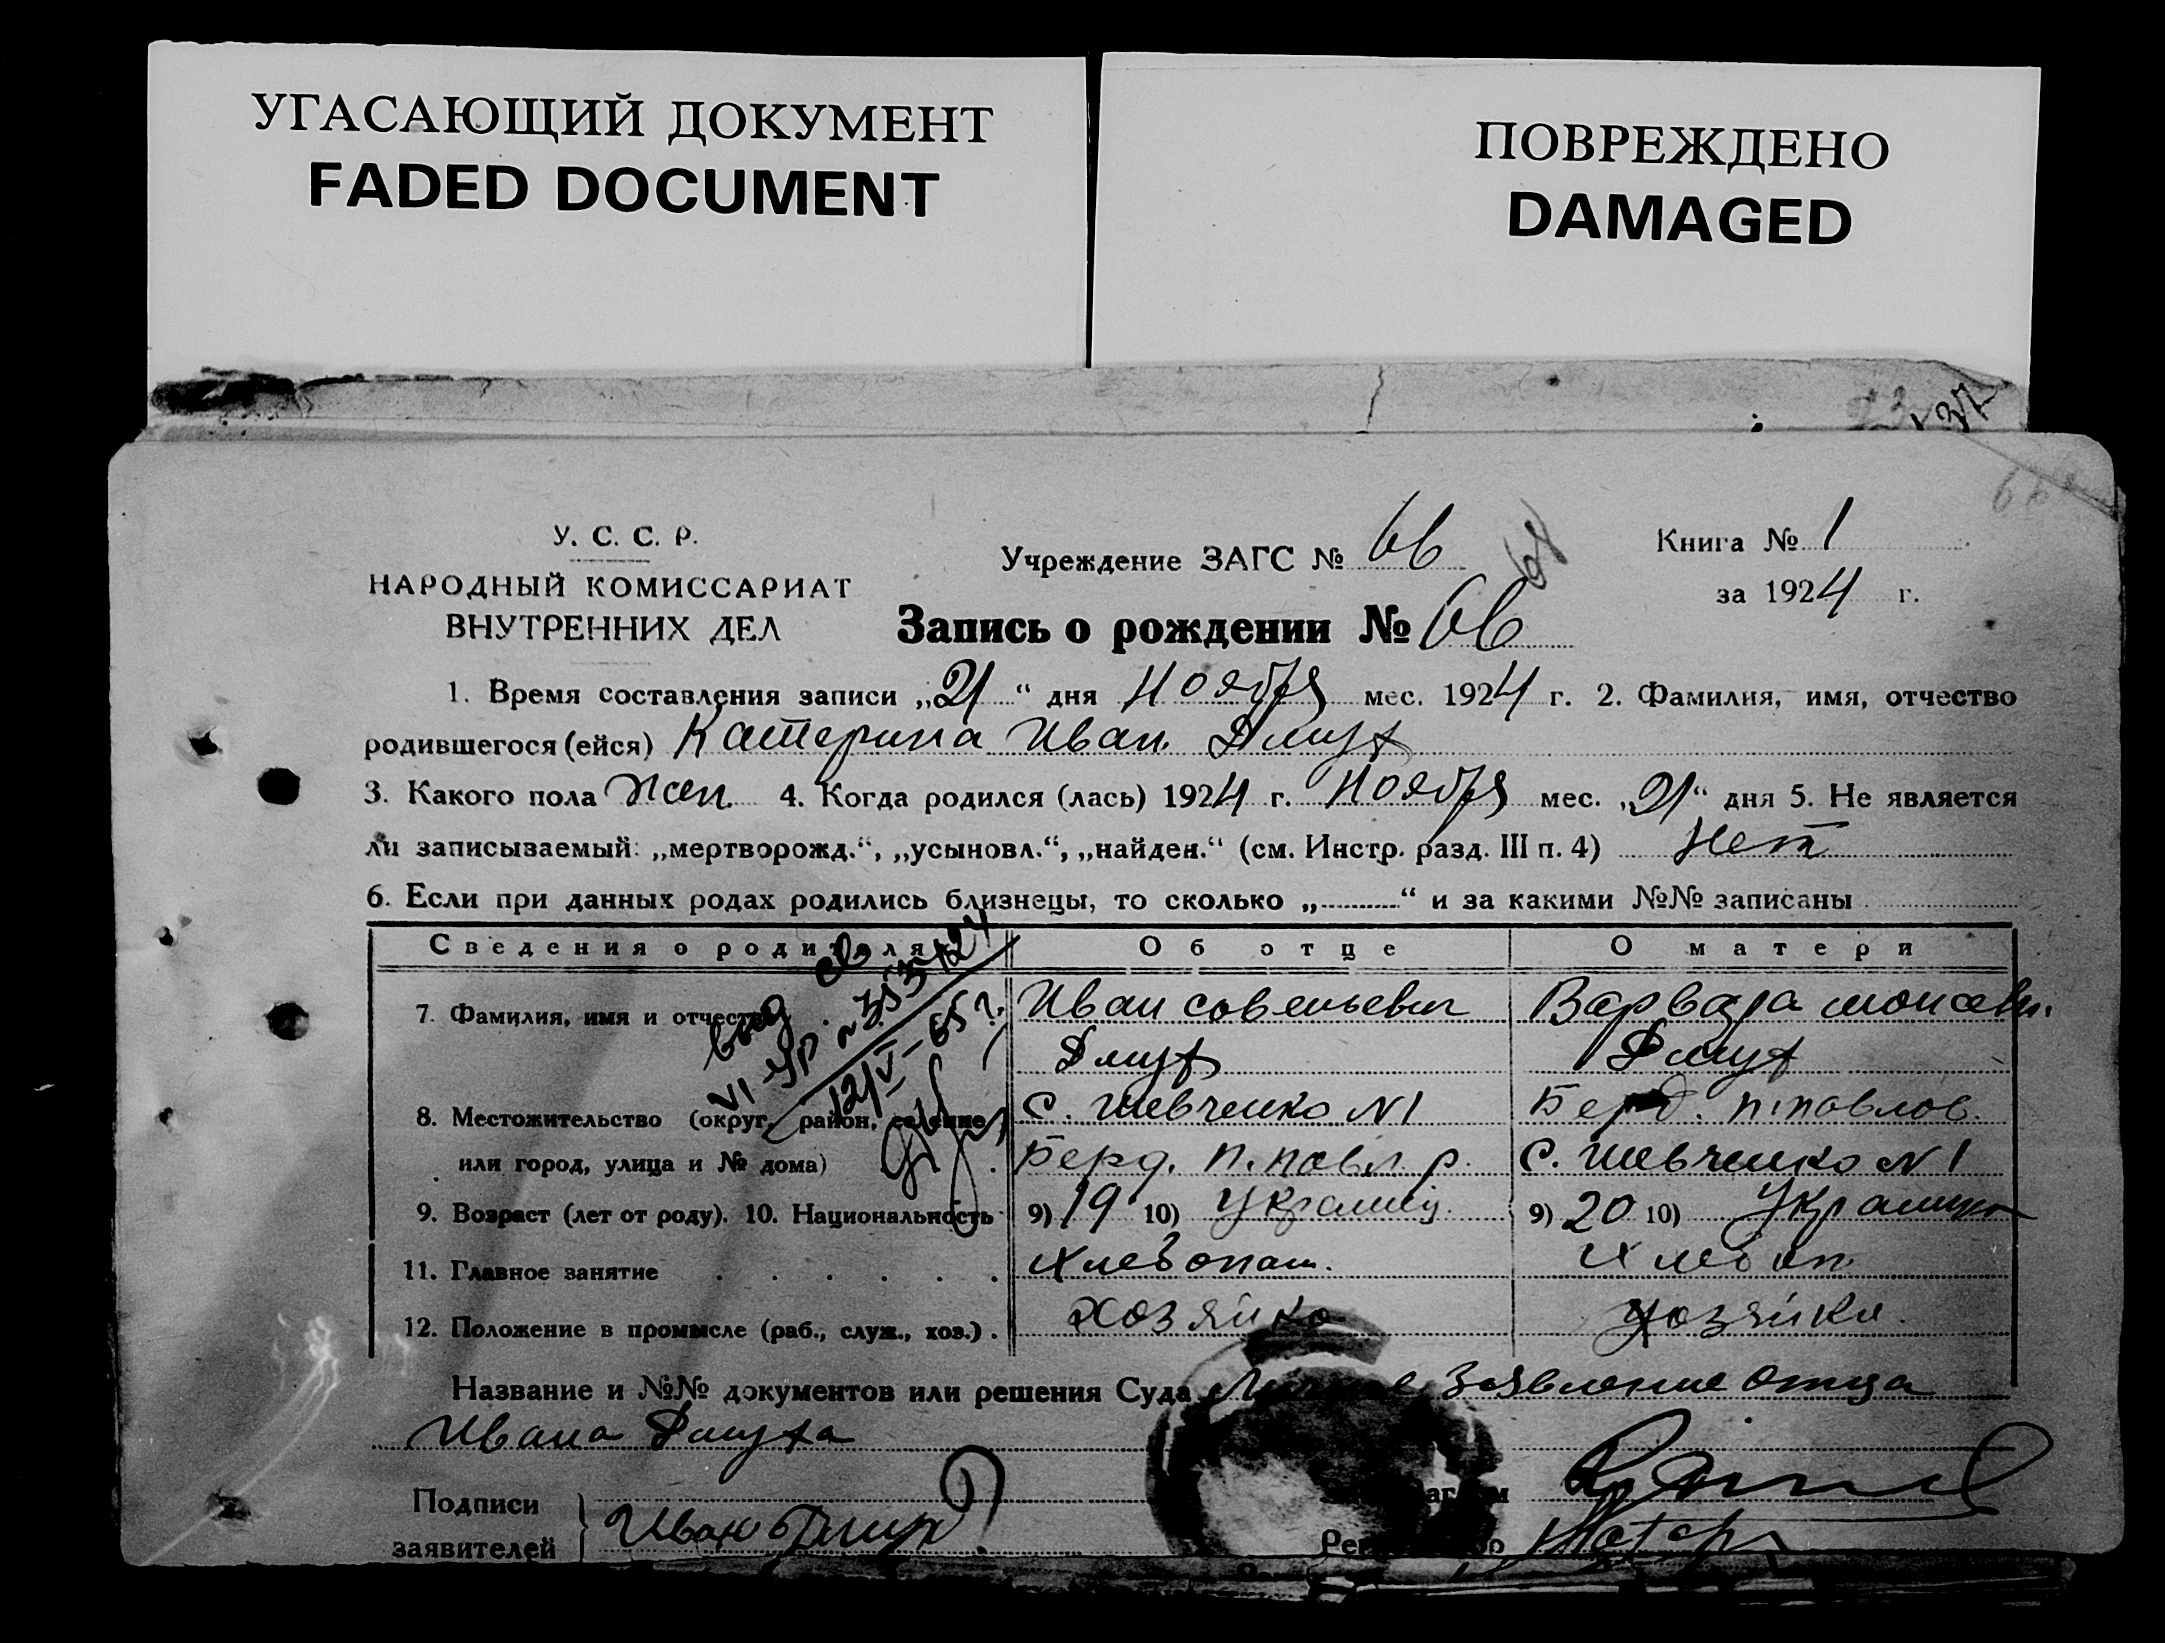 УГАСАЮЩИЙ ДОКУМЕНТ
FADED DOCUMENT
ПОВРЕЖДЕНО
DAMAGED
У. С. С. Р.
НАРОДНЫЙ КОМИССАРИАТ
ВНУТРЕННИХ ДЕЛ
Учреждение ЗАГС № 66
Книга № 1
за 1924 г.
Запись о рождении № 66
1. Время составления записи „21“ дня Ноября мес. 1924 г. 2. Фамилия, имя, отчество
родившегося (ейся) Катерина Иван. Дмух
3. Какого пола жен. 4. Когда родился (лась) 1924 г. Ноября мес. „21“ дня 5. Не является
ли записываемый: „мертворожд.“, „усыновл.“, „найден.“ (см. Инстр. разд. III п. 4) Нет
6. Если при данных родах родились близнецы, то сколько „ “ и за какими №№ записаны
Сведения о родителях Об отце О матери
7. Фамилия, имя и отчество Иван Савельевич Варвара Моисеев.
Дмух Дмух
8. Местожительство (округ, район, селение С. Шевченко N1 Берд. П. Павлов.
или город, улица и № дома) Берд. П. Павл. р. С. Шевченко N1
9. Возраст (лет от роду). 10. Национальность 9) 19 10) Украинец 9) 20 10) Украинка
11. Главное занятие Хлебопаш. Хлебоп.
12. Положение в промысле (раб., служ., хоз.) Хозяйка Хозяйка
Название и №№ документов или решения Суда заявление Отца
Ивана Дмуха
Подписи
заявителей Иван Дмух